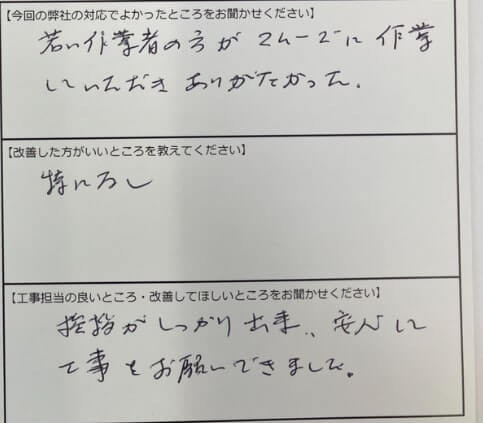 【今回の弊社の対応でよかったところをお聞かせください】
若い作業者の方がスムーズに作業
していただきありがたかった。
【改善した方がいいところを教えてください】
特になし
【工事担当の良いところ・改善してほしいところをお聞かせください】
挨拶がしっかり出来、安心して
工事をお願いできました。